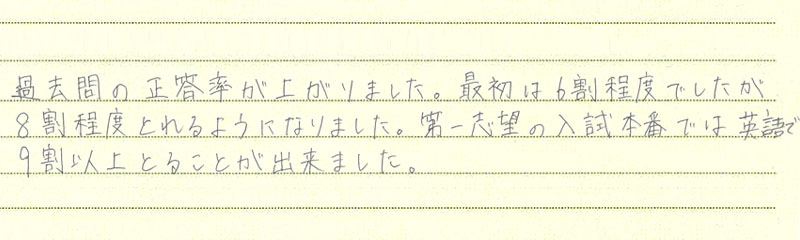 過去問の正答率が上がりました。最初は6割程度でしたが
8割程度とれるようになりました。第一志望の入試本番では英語で
9割以上とることが出来ました。